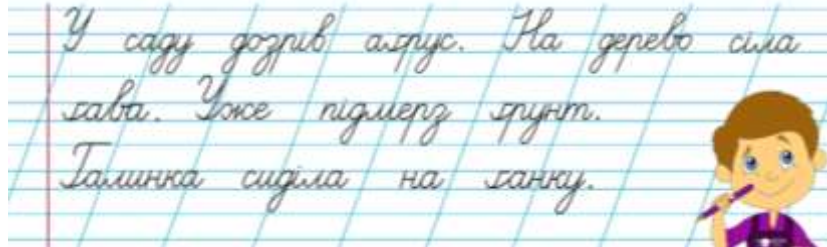 У саду дозрів аґрус. На дерево сіла
ґава. Уже підмерз ґрунт.
Галинка сиділа на ґанку.